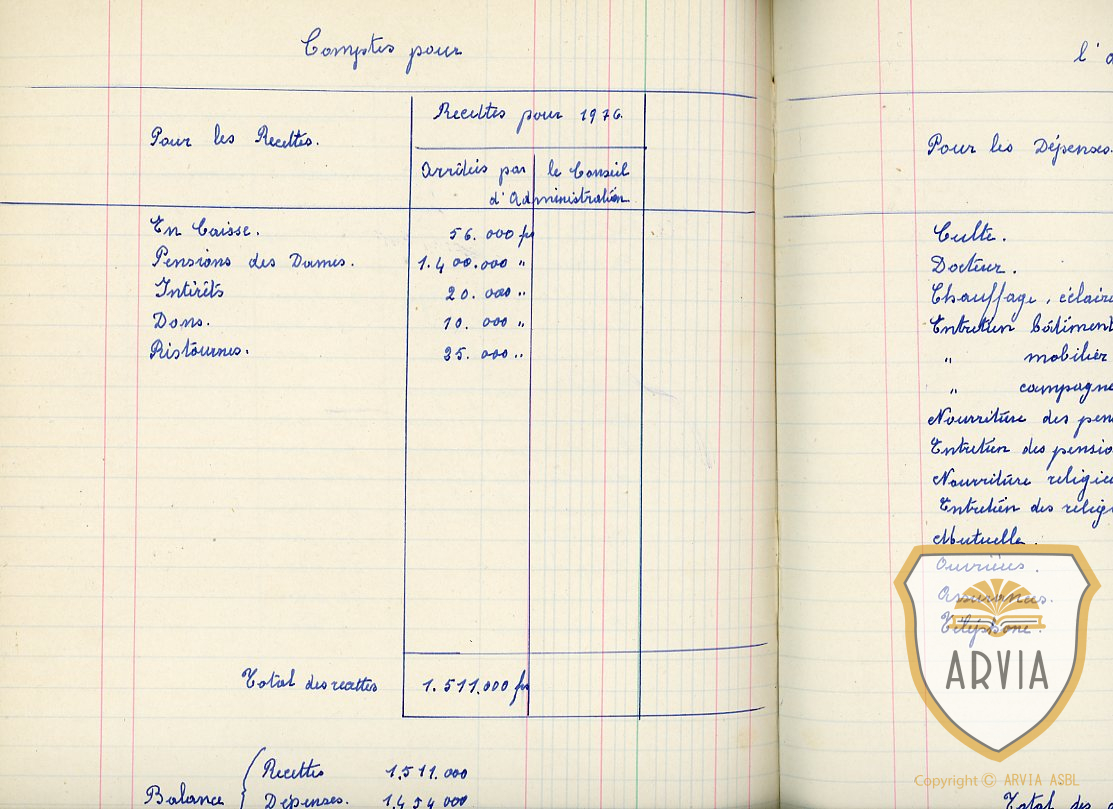 Comptes pour
Recettes pour 1976.
Pour les Recettes.
Arrêtées par le Conseil
d'Administration
En Caisse. 56.000 fr
Pensions des Dames. 1.400.000 "
Intérêts 20.000 "
Dons. 10.000 "
Ristournes. 25.000 "
Total des recettes 1.511.000 fr
Balance { Recettes 1.511.000
Dépenses. 1.454.000
l'a
Pour les Dépenses.
Culte.
Docteur.
Chauffage, éclaira
Entretien bâtiment
" mobilier
" campagne
Nourriture des pen
Entretien des pensio
Nourriture religieu
Entretien des religi
Mutuelle.
Ouvrières.
Assurances.
Téléphone.
ARVIA
Copyright © ARVIA ASBL
Total des